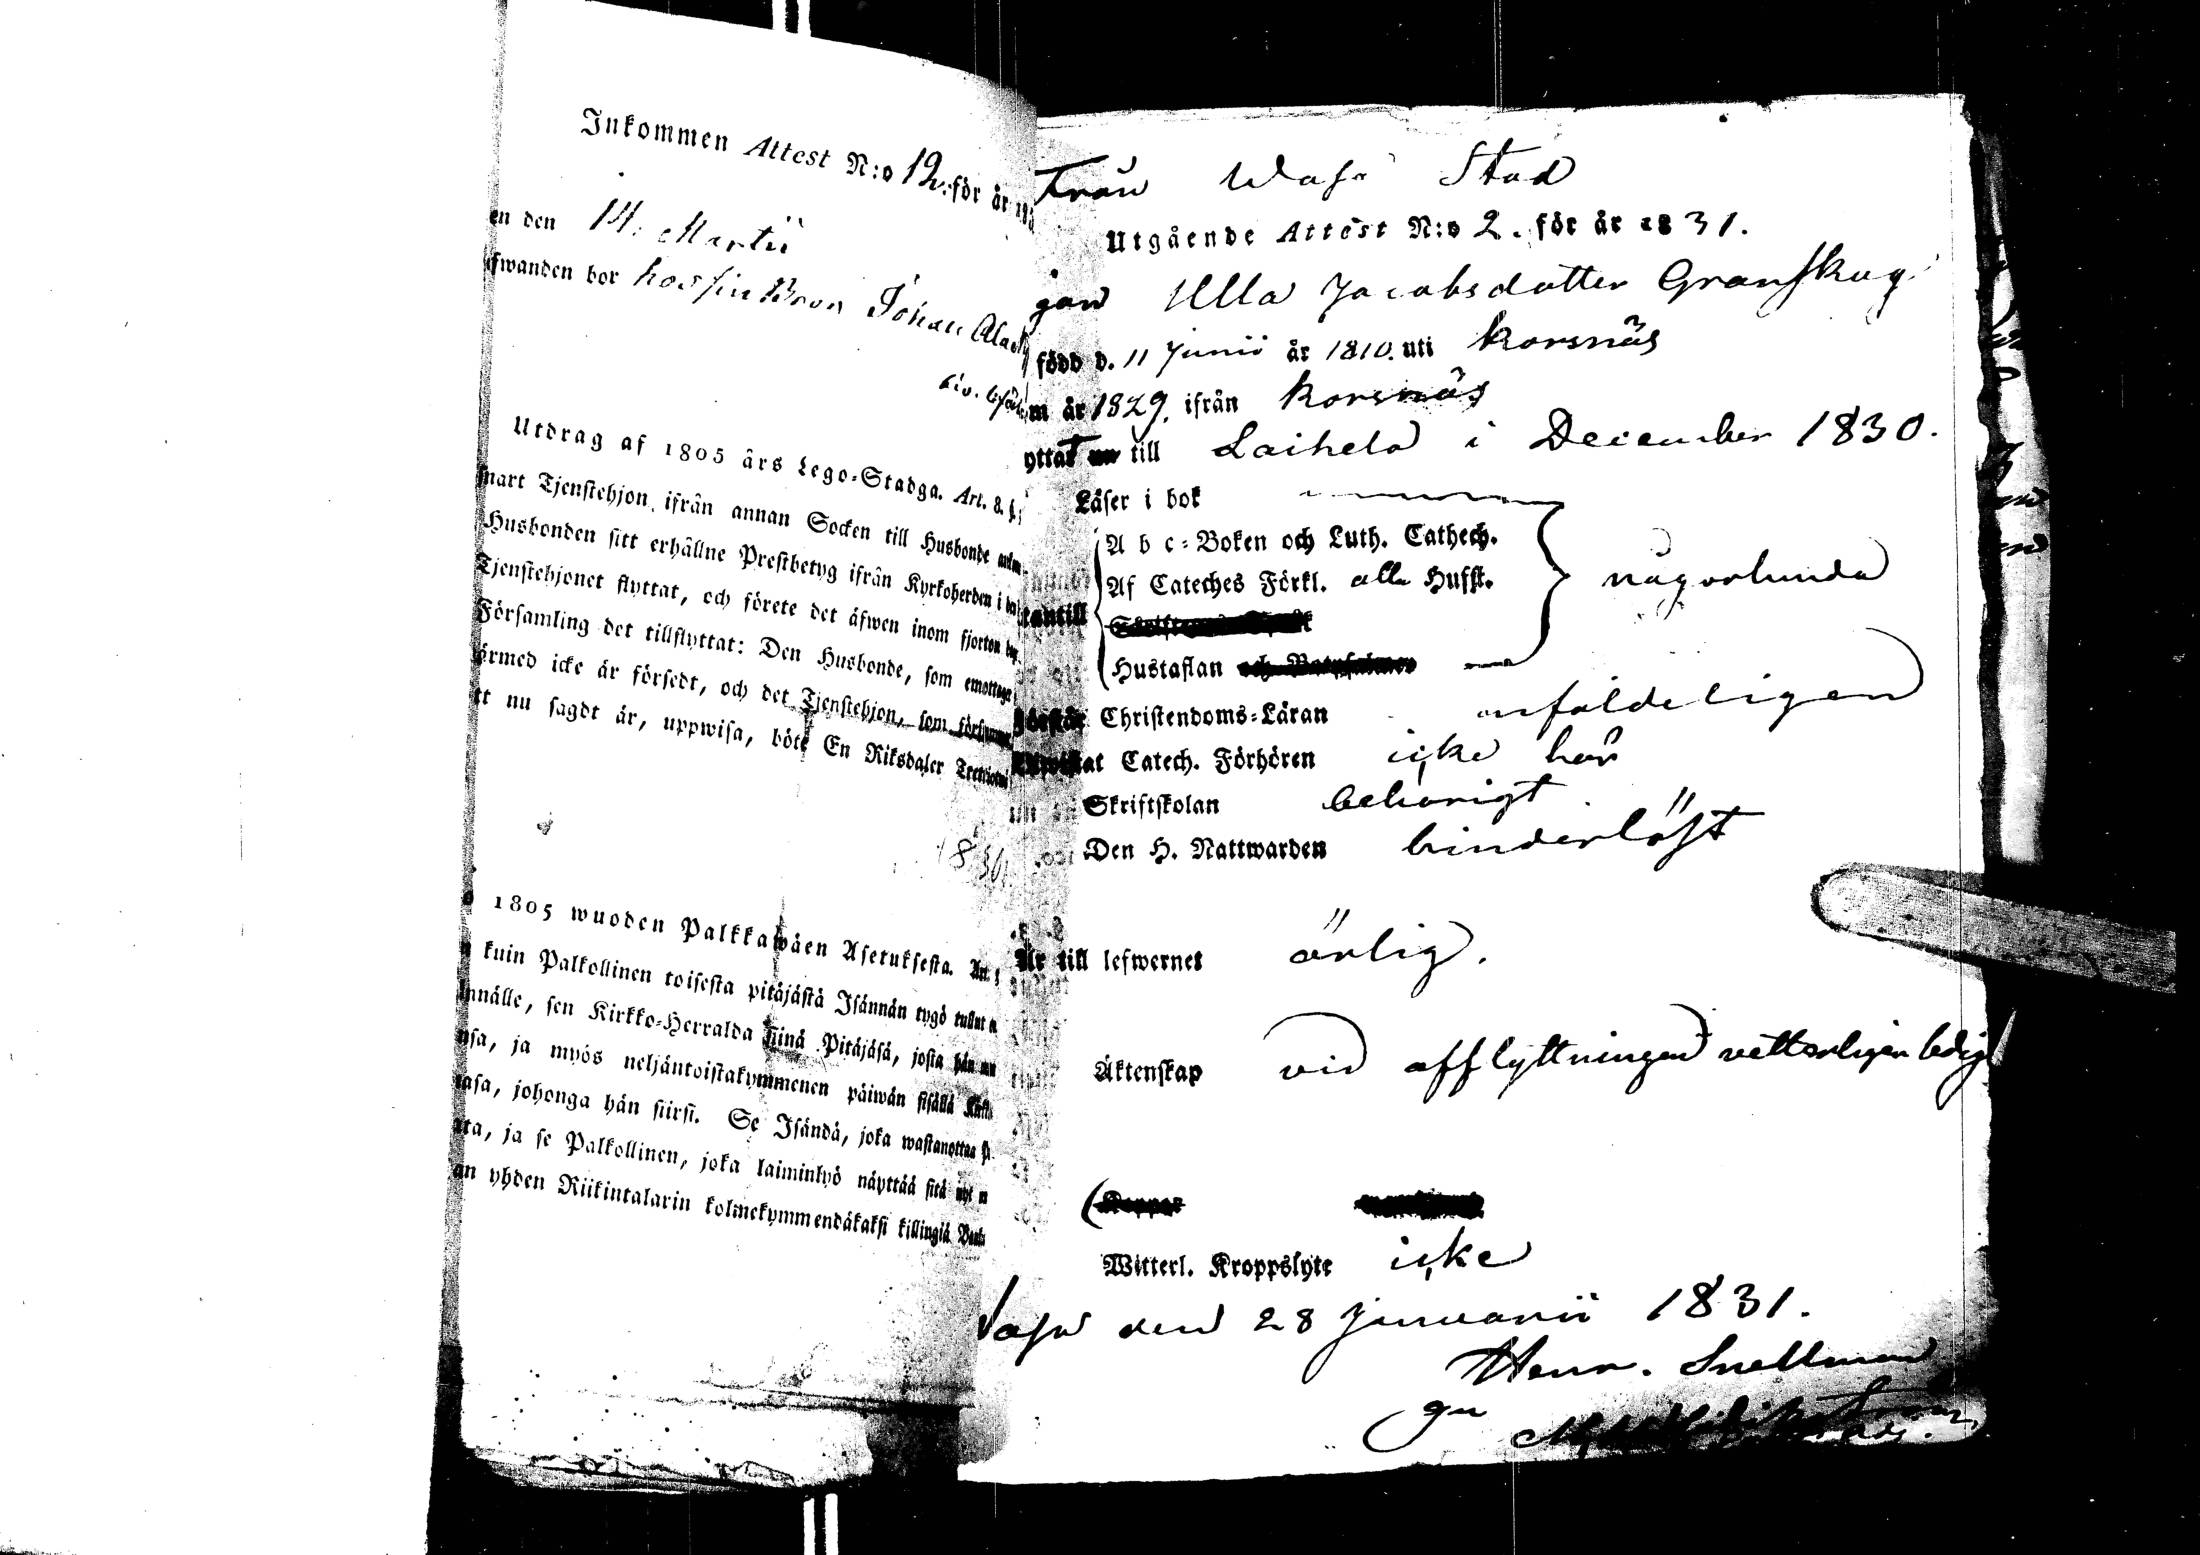 Inkommen Attest N:o 12. för år
en den 14. Martii
fwanden bor hos sin Bror Johan
Utdrag af 1805 års Lego-Stadga. Art. 8. §.
nart Tjenstehjon, ifrån annan Socken till Husbonde
Husbonden sitt erhållne Prestbetyg ifrån Kyrkoherden i
Tjenstehjonet flyttat, och förete det äfwen inom fjorton
Församling det tillflyttat: Den Husbonde, som emottager
ärmed icke är försedt, och det Tjenstehjon, som
tt nu sagdt är, uppwisa, böte En Riksdaler
1830.
1805 wuoden Palkkawäen Asetuksesta.
kuin Palkollinen toisesta pitäjästä Isännän tygö tullut
nnälle, sen Kirkko-Herralda siinä Pitäjäsä, josta hän
sa, ja myös neljäntoistakymmenen päiwän sisällä
asa, johonga hän siirsi. Se Isändä, joka wastanottaa
ta, ja se Palkollinen, joka laiminlyö näyttää sitä nyt
an yhden Riikintalarin kolmekymmendäkaksi killingiä
Från Wasa Stad
Utgående Attest N:o 2. för år 1831.
gan Ulla Jacobsdotter Granskog
född d. 11 Junii år 1810. uti Korsnäs
m år 1829. ifrån Korsnäs
yttat till Laihela i December 1830.
Läser i bok
A b c-Boken och Luth. Cathech.
Af Cateches Förkl. alla Hufst. någorlunda
tantill
Hustaflan
Förstår Christendoms-Läran enfaldeligen
Catech. Förhören icke här
Skriftskolan behörigt
Den H. Nattwarden hinderlöst
Är till lefwernet ärlig.
Äktenskap vid afflyttningen vetterligen ledig
Witterl. Kroppslyte icke
Vasa den 28 Januarii 1831.
Henr. Snellman
gm